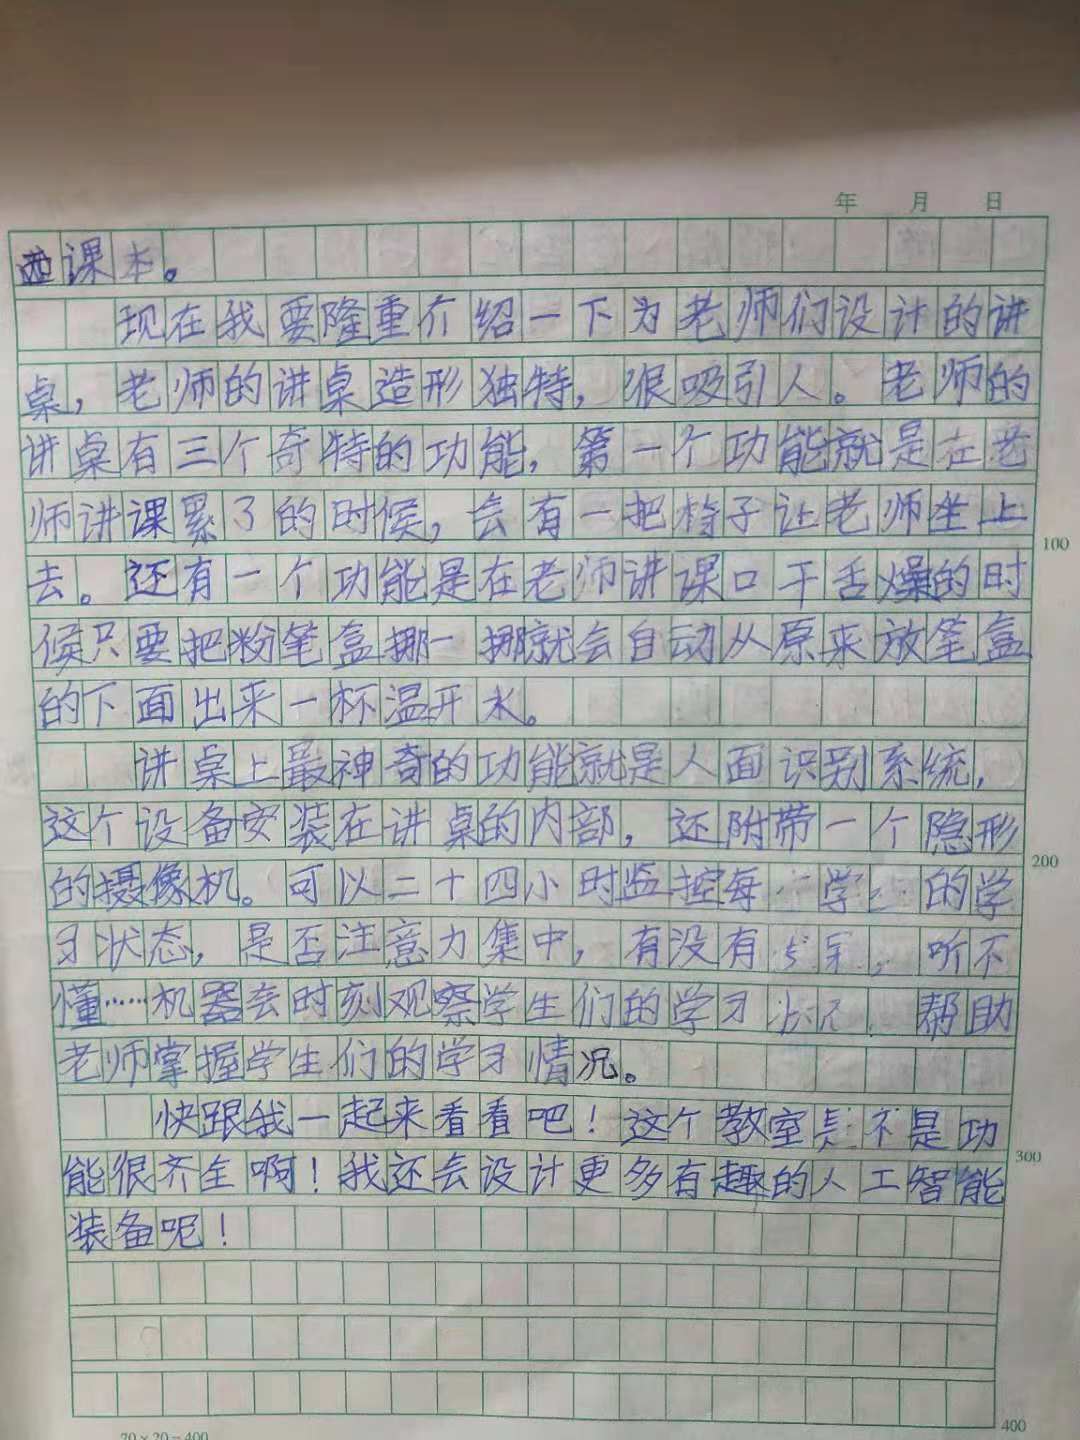 年 月 日
课本。
现在我要隆重介绍一下为老师们设计的讲
桌，老师的讲桌造形独特，很吸引人。老师的
讲桌有三个奇特的功能，第一个功能就是在老
师讲课累了的时候，会有一把椅子让老师坐上
100
去。还有一个功能是在老师讲课口干舌燥的时
候只要把粉笔盒挪一挪就会自动从原来放笔盒
的下面出来一杯温开水。
讲桌上最神奇的功能就是人面识别系统，
这个设备安装在讲桌的内部，还附带一个隐形
200
的摄像机。可以二十四小时监控每学的学
习状态，是否注意力集中，有没有，听不
懂……机器会时刻观察学生们的学习，帮助
老师掌握学生们的学习情况。
快跟我一起来看看吧！这个教室是不是功
300
能很齐全啊！我还会设计更多有趣的人工智能
装备呢！
400
20×20=400